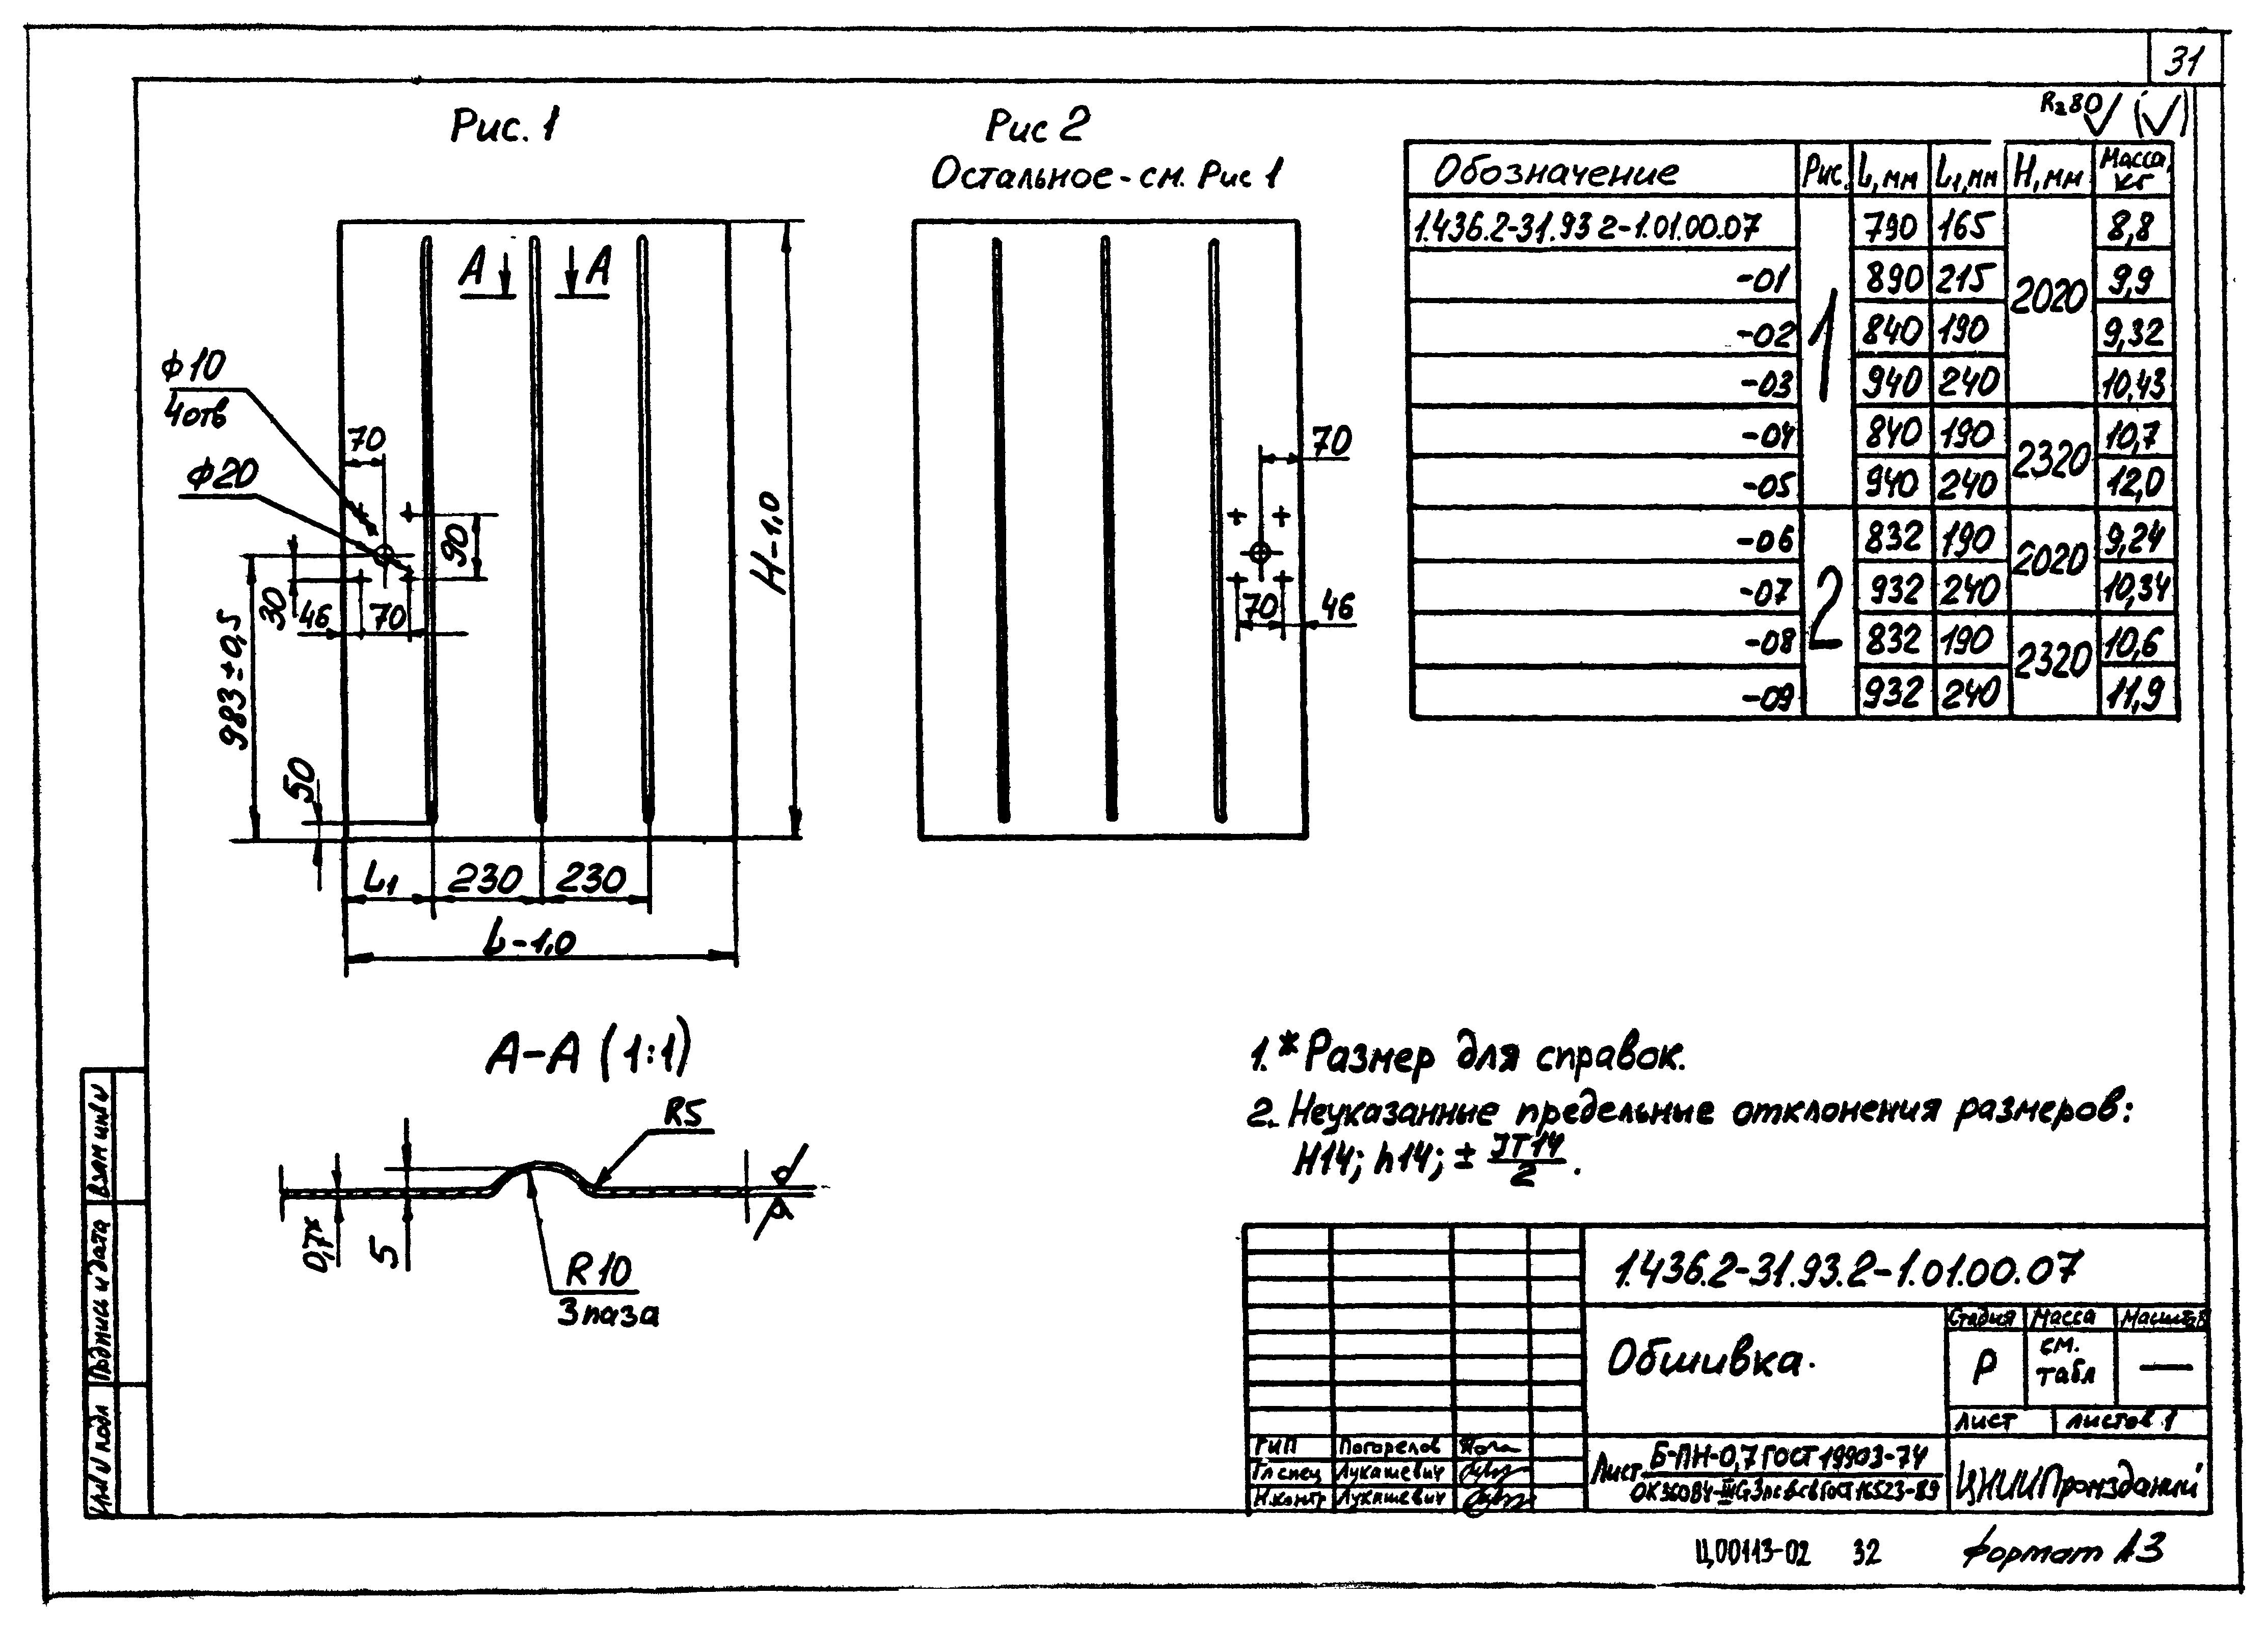 31
Rz80 (√)
Рис. 1
Рис 2
Остальное - см. Рис 1
А А
Ф10
4отв
70
Ф20
90
30
46 70
983±0,5
50
Н-1,0
L1 230 230
L-1,0
70
70 46
Обозначение Рис. L, мм L1, мм Н, мм Масса, кг
1.436.2-31.93 2-1.01.00.07 1 790 165 2020 8,8
-01 890 215 9,9
-02 840 190 9,32
-03 940 240 10,43
-04 840 190 2320 10,7
-05 940 240 12,0
-06 2 832 190 2020 9,24
-07 932 240 10,34
-08 832 190 2320 10,6
-09 932 240 11,9
А-А (1:1)
R5
0,7*
5
R10
3 паза
1.* Размер для справок.
2. Неуказанные предельные отклонения размеров:
Н14; h14; ± IT14/2.
1.436.2-31.93.2-1.01.00.07
Обшивка.
Стадия Масса Масштаб
Р см. табл —
Лист Листов 1
ГИП Погорелов
Гл спец Лукашевич
Н.контр Лукашевич
Лист Б-ПН-0,7 ГОСТ 19903-74
ОК360В4-III ГОСТ 16523-89
ЦНИИПромзданий
Взам инв №
Подпись и дата
Инв № подл
Ц00113-02 32
Формат А3